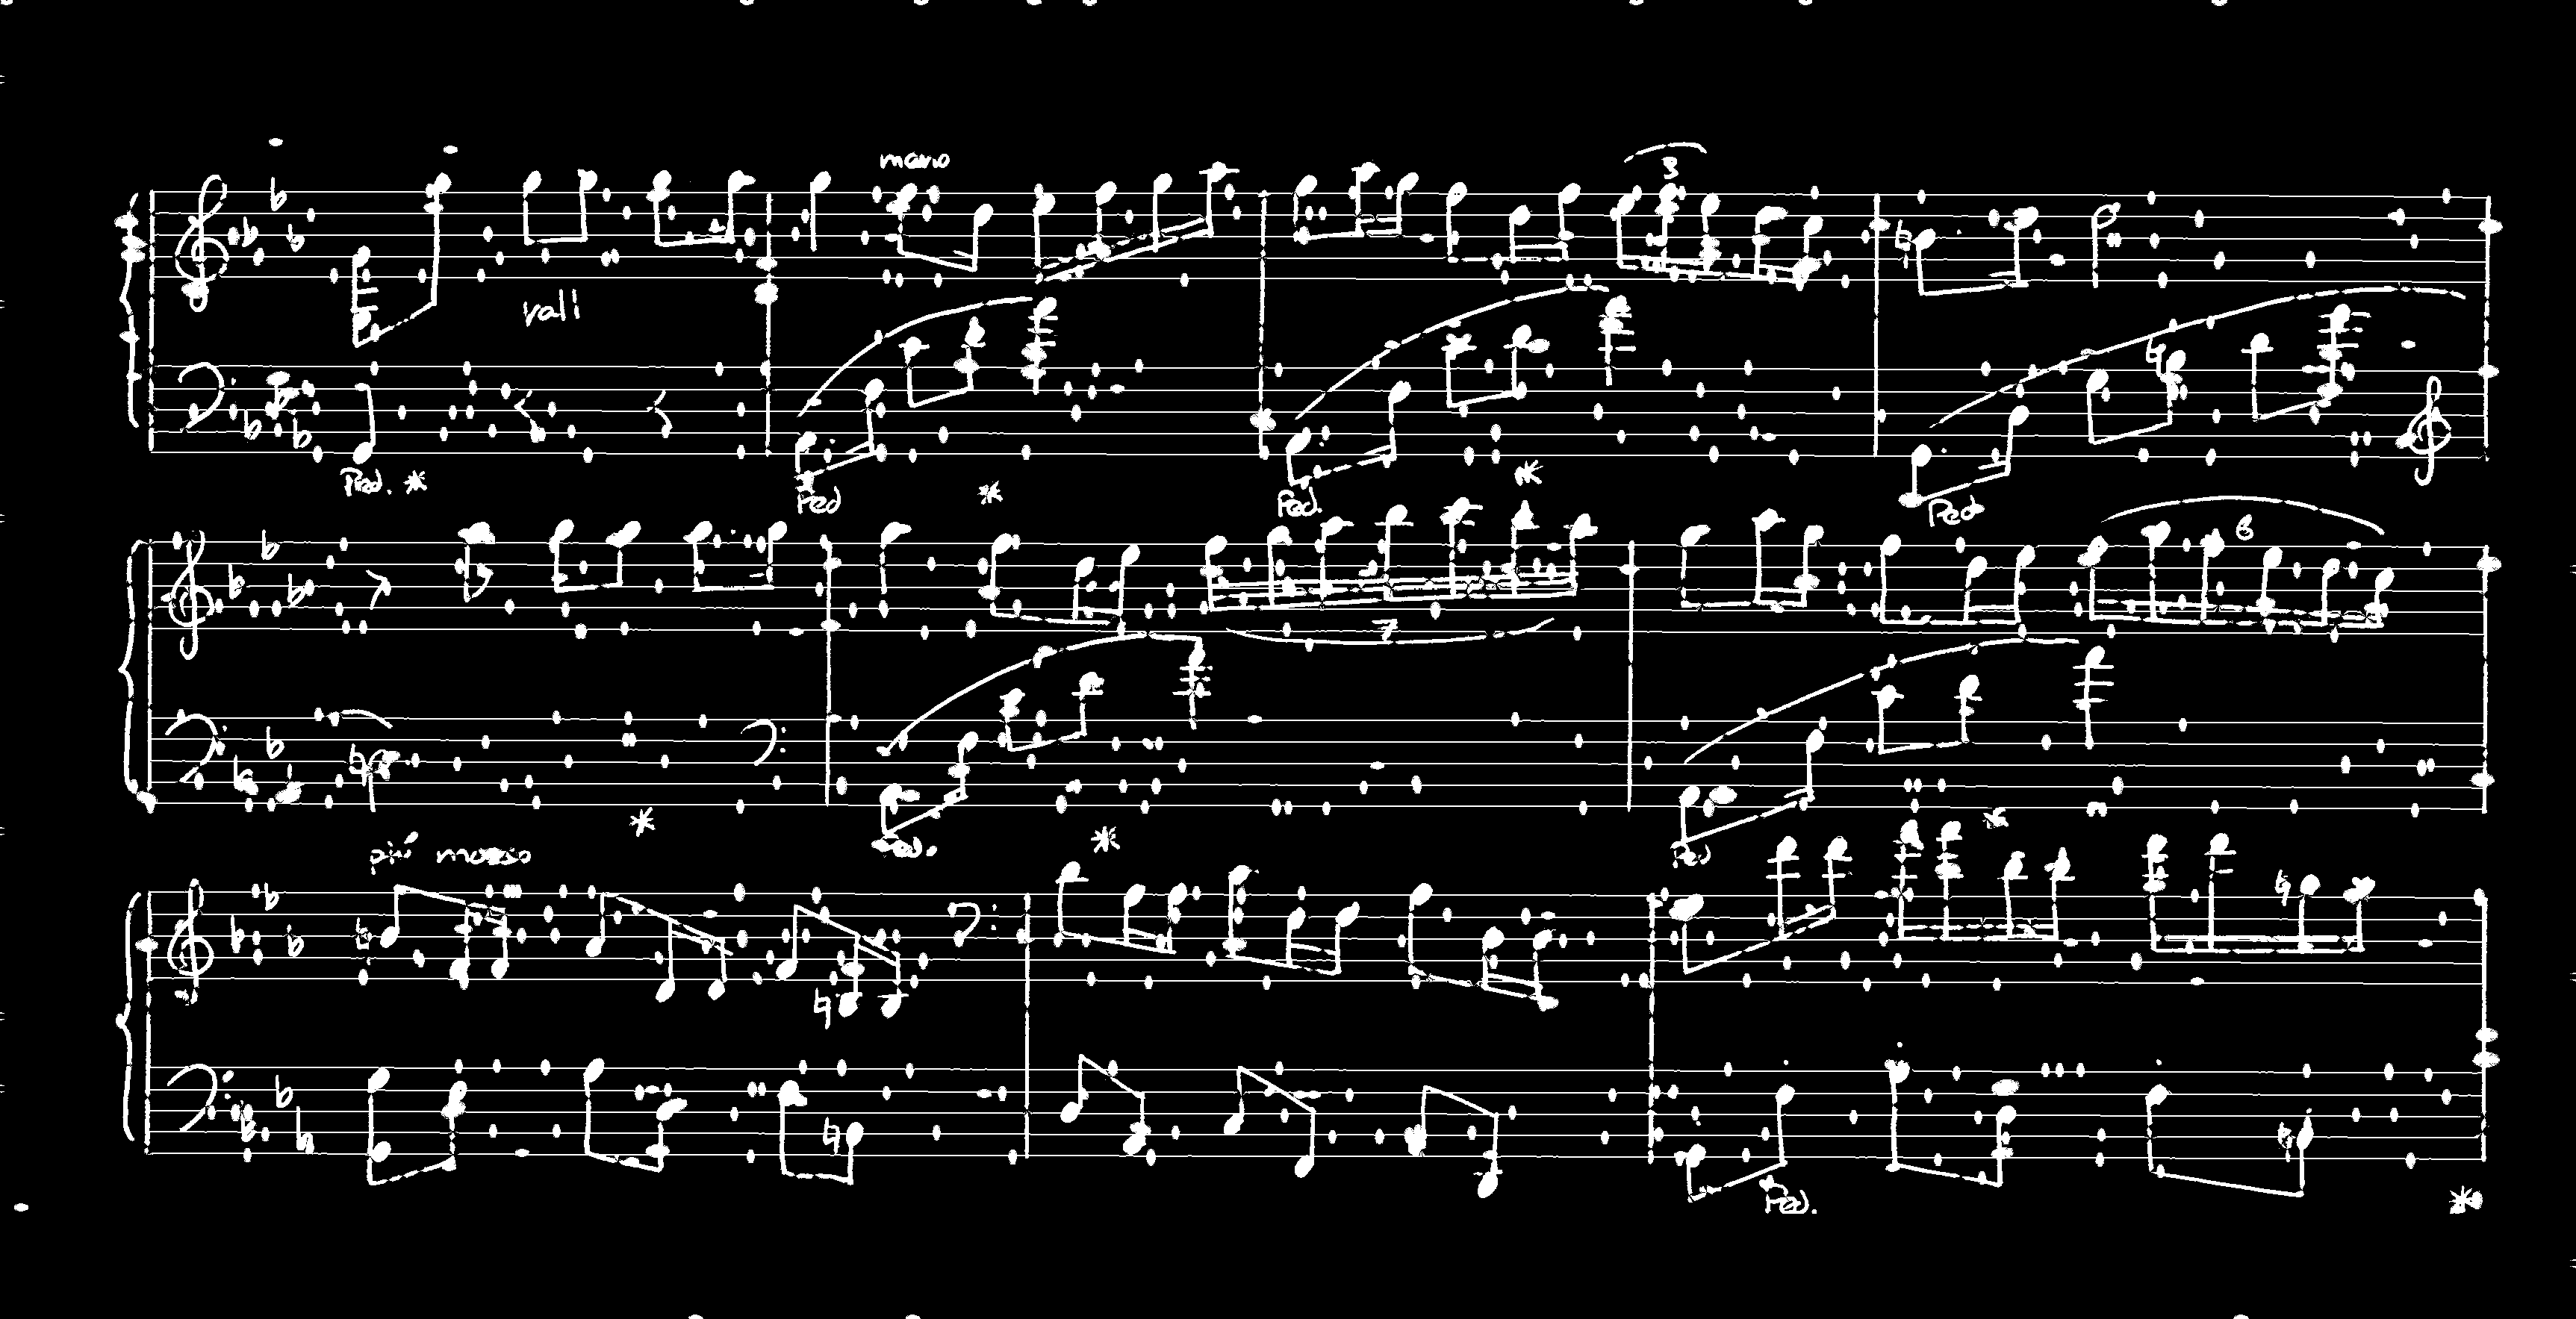 mano
3
rall
Ped. *
Ped *
Ped. *
Ped
6
7
*
Ped. *
Ped *
più mosso
Ped. *